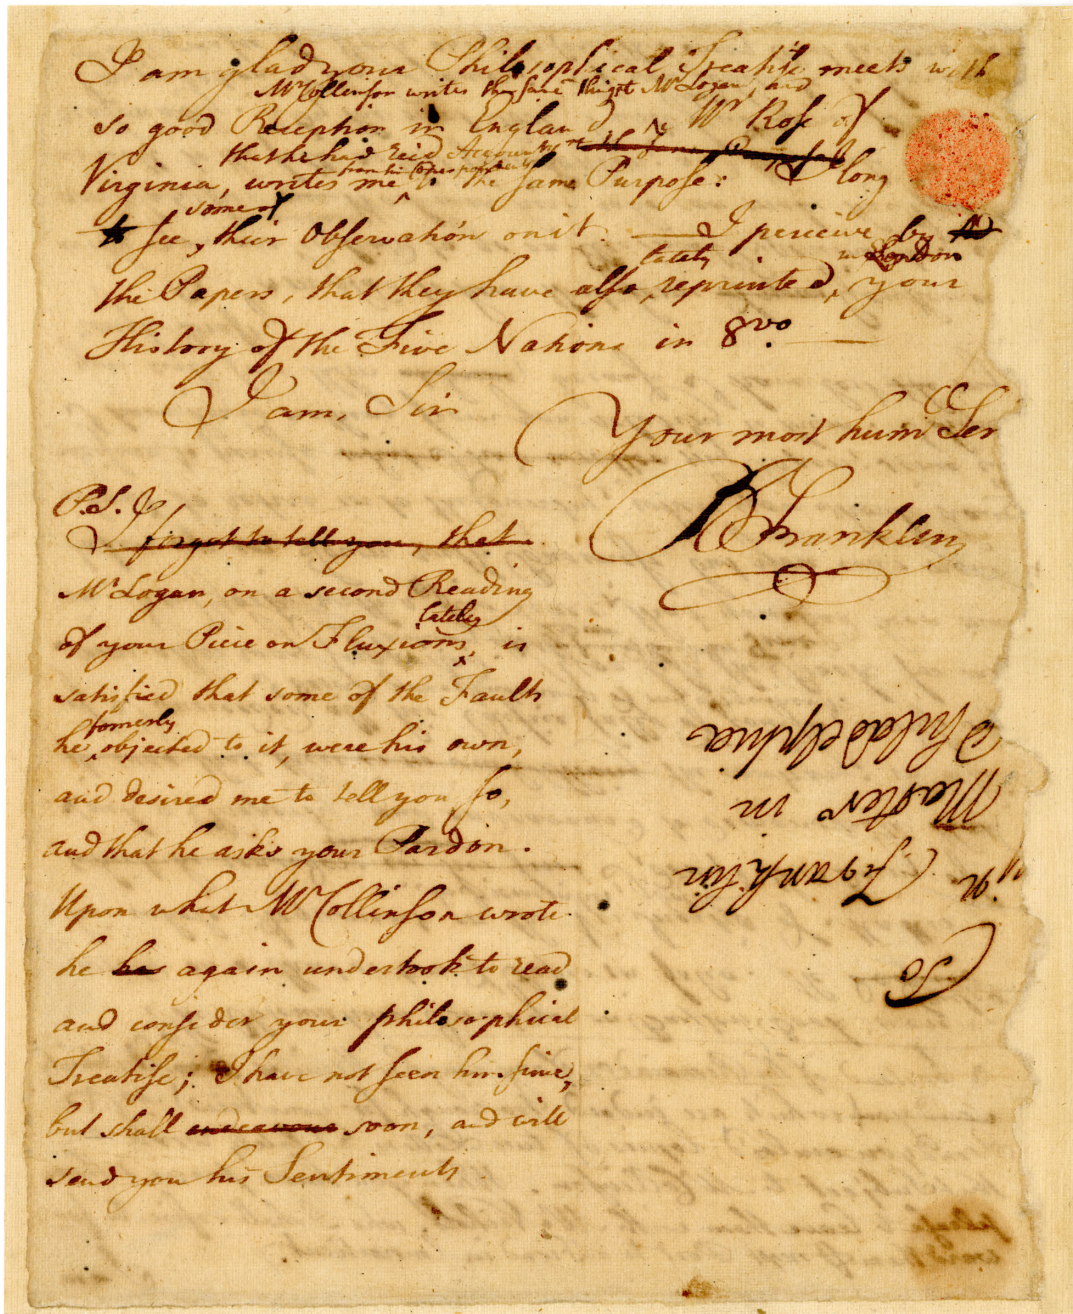 I am glad your Philosophical Treatise meets with
Mr Collinson writes the same thing to Mr Logan, and
so good Reception in England Mr Rose of
that he had rec'd Accounts
from his Correspondents
Virginia, writes me to the same Purpose: I long
some of
to see their Observation on it. — I perceive by
lately in London
the Papers, that they have also reprinted, your
History of the Five Nations in 8vo. —
I am, Sir
Your most hum Ser
B Franklin
P.S. I
I forgot to tell you, that
Mr Logan, on a second Reading
lately
of your Piece on Fluxions, is
satisfied that some of the Faults
formerly
he objected to it, were his own,
and desired me to tell you so,
and that he asks your Pardon.
Upon what Mr Collinson wrote
he has again undertook to read
and consider your philosophical
Treatise; I have not seen him since,
but shall endeavour soon, and will
send you his Sentiments
To
n Franklin
Master in
Philadelphia